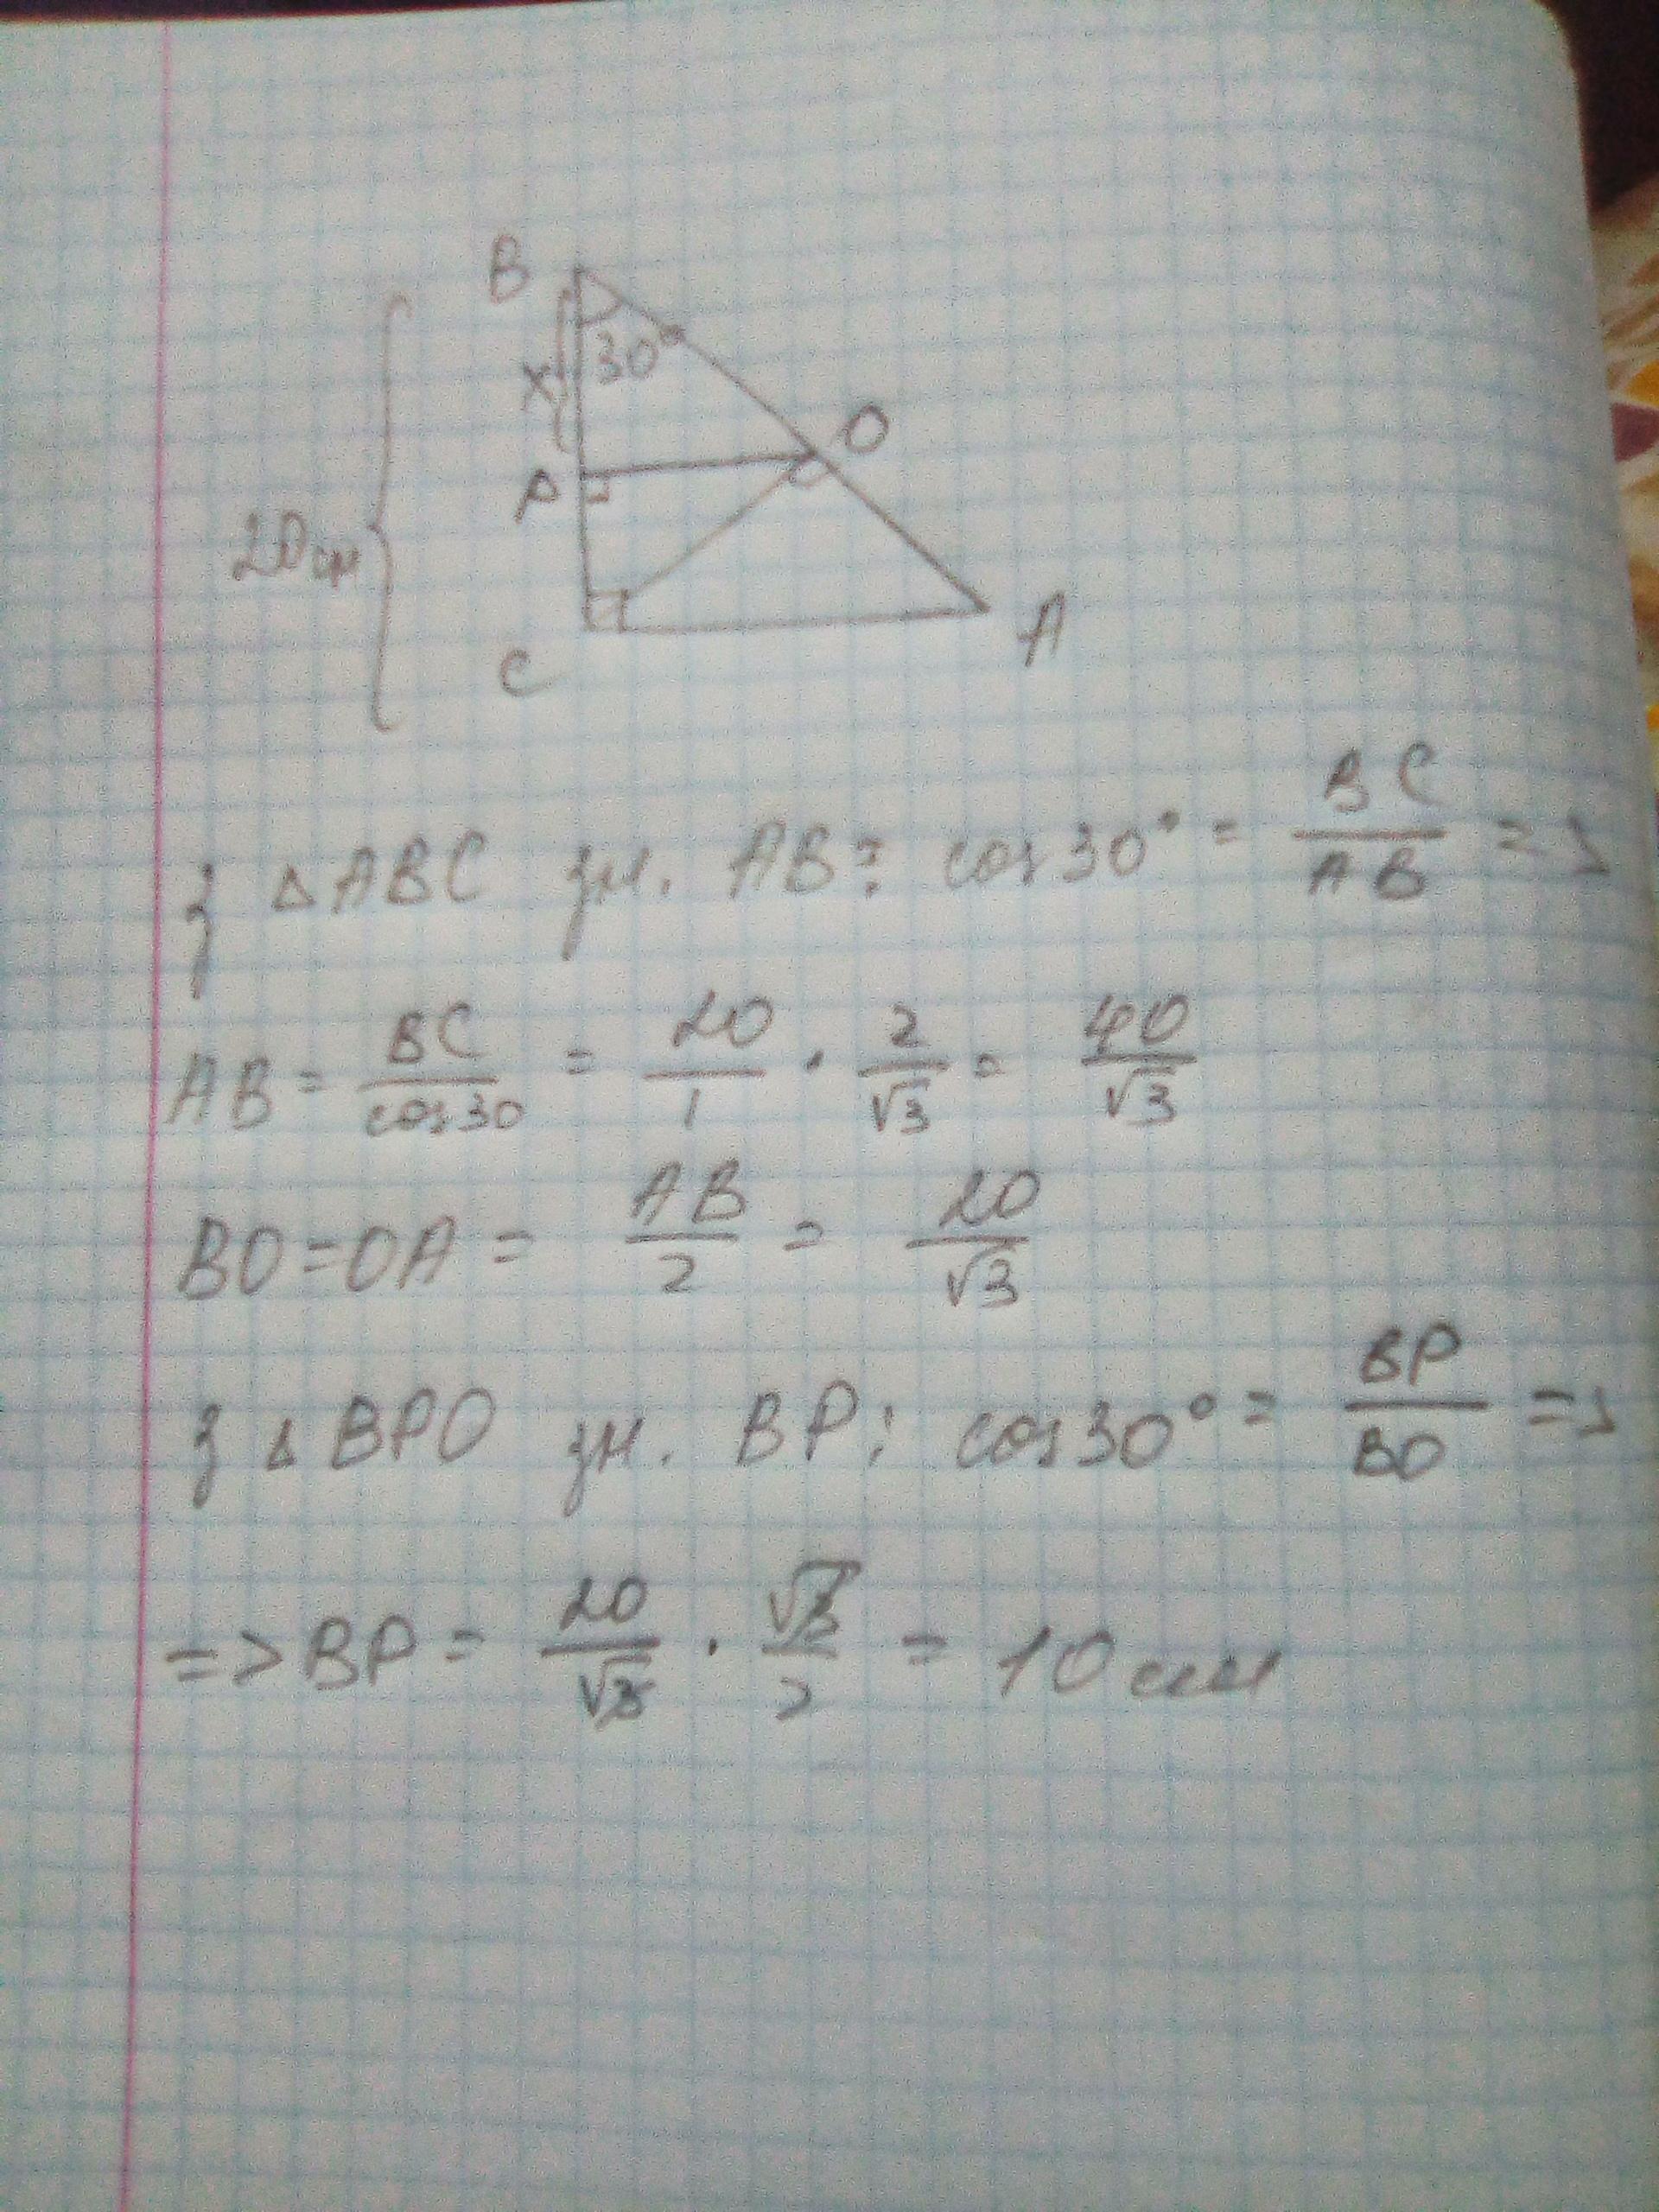 B
30°
x
O
P
20см
C
A
з △ABC зн. AB: cos30° = BC/AB =>
AB = BC/cos30 = 20/1 · 2/√3 = 40/√3
BO=OA = AB/2 = 20/√3
з △BPO зн. BP: cos30° = BP/BO =>
=> BP = 20/√3 · √3/2 = 10 см